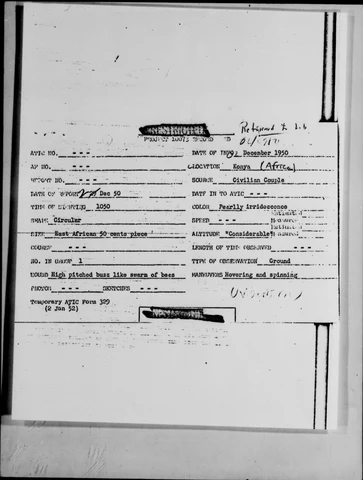 Returned to
ATIC NO. - - - DATE OF INFO. 2 December 1950
AF NO. - - - LOCATION Kenya (Africa)
REPORT NO. - - - SOURCE Civilian Couple
DATE OF REPORT 2 Dec 50 DATE IN TO ATIC - - -
TIME OF SIGHTING 1050 COLOR Pearlly irridescence
SHAPE Circular SPEED - - -
SIZE East African 50 cents piece ALTITUDE "Considerable"
COURSE - - - LENGTH OF TIME OBSERVED - - -
NO. IN GROUP 1 TYPE OF OBSERVATION Ground
SOUND High pitched buzz like swarm of bees MANEUVERS Hovering and spinning
PHOTOS - - - SKETCHES - - -
Temporary ATIC Form 329
(2 Jan 52)